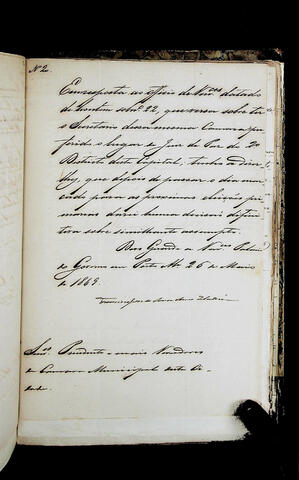 Nº 2.
Em resposta ao officio de Vmces datado
de hontem sob nº 22, que versa sobre ter
o Secretario dessa mesma Camara
ferido o lugar e Juiz de Paz do 2º
Districto desta Capital, tenho a
que depois de passar o dia
cado para as proximas eleições pri
marias darei huma decisão defini
tiva sobre similhante assumpto.
Deos Guarde a Vmces Palacio
do Governo em Porto 26 de Maio
de 1863.
Senres Presidente e mais Vereadores
da Camara Municipal desta Ci
dade.